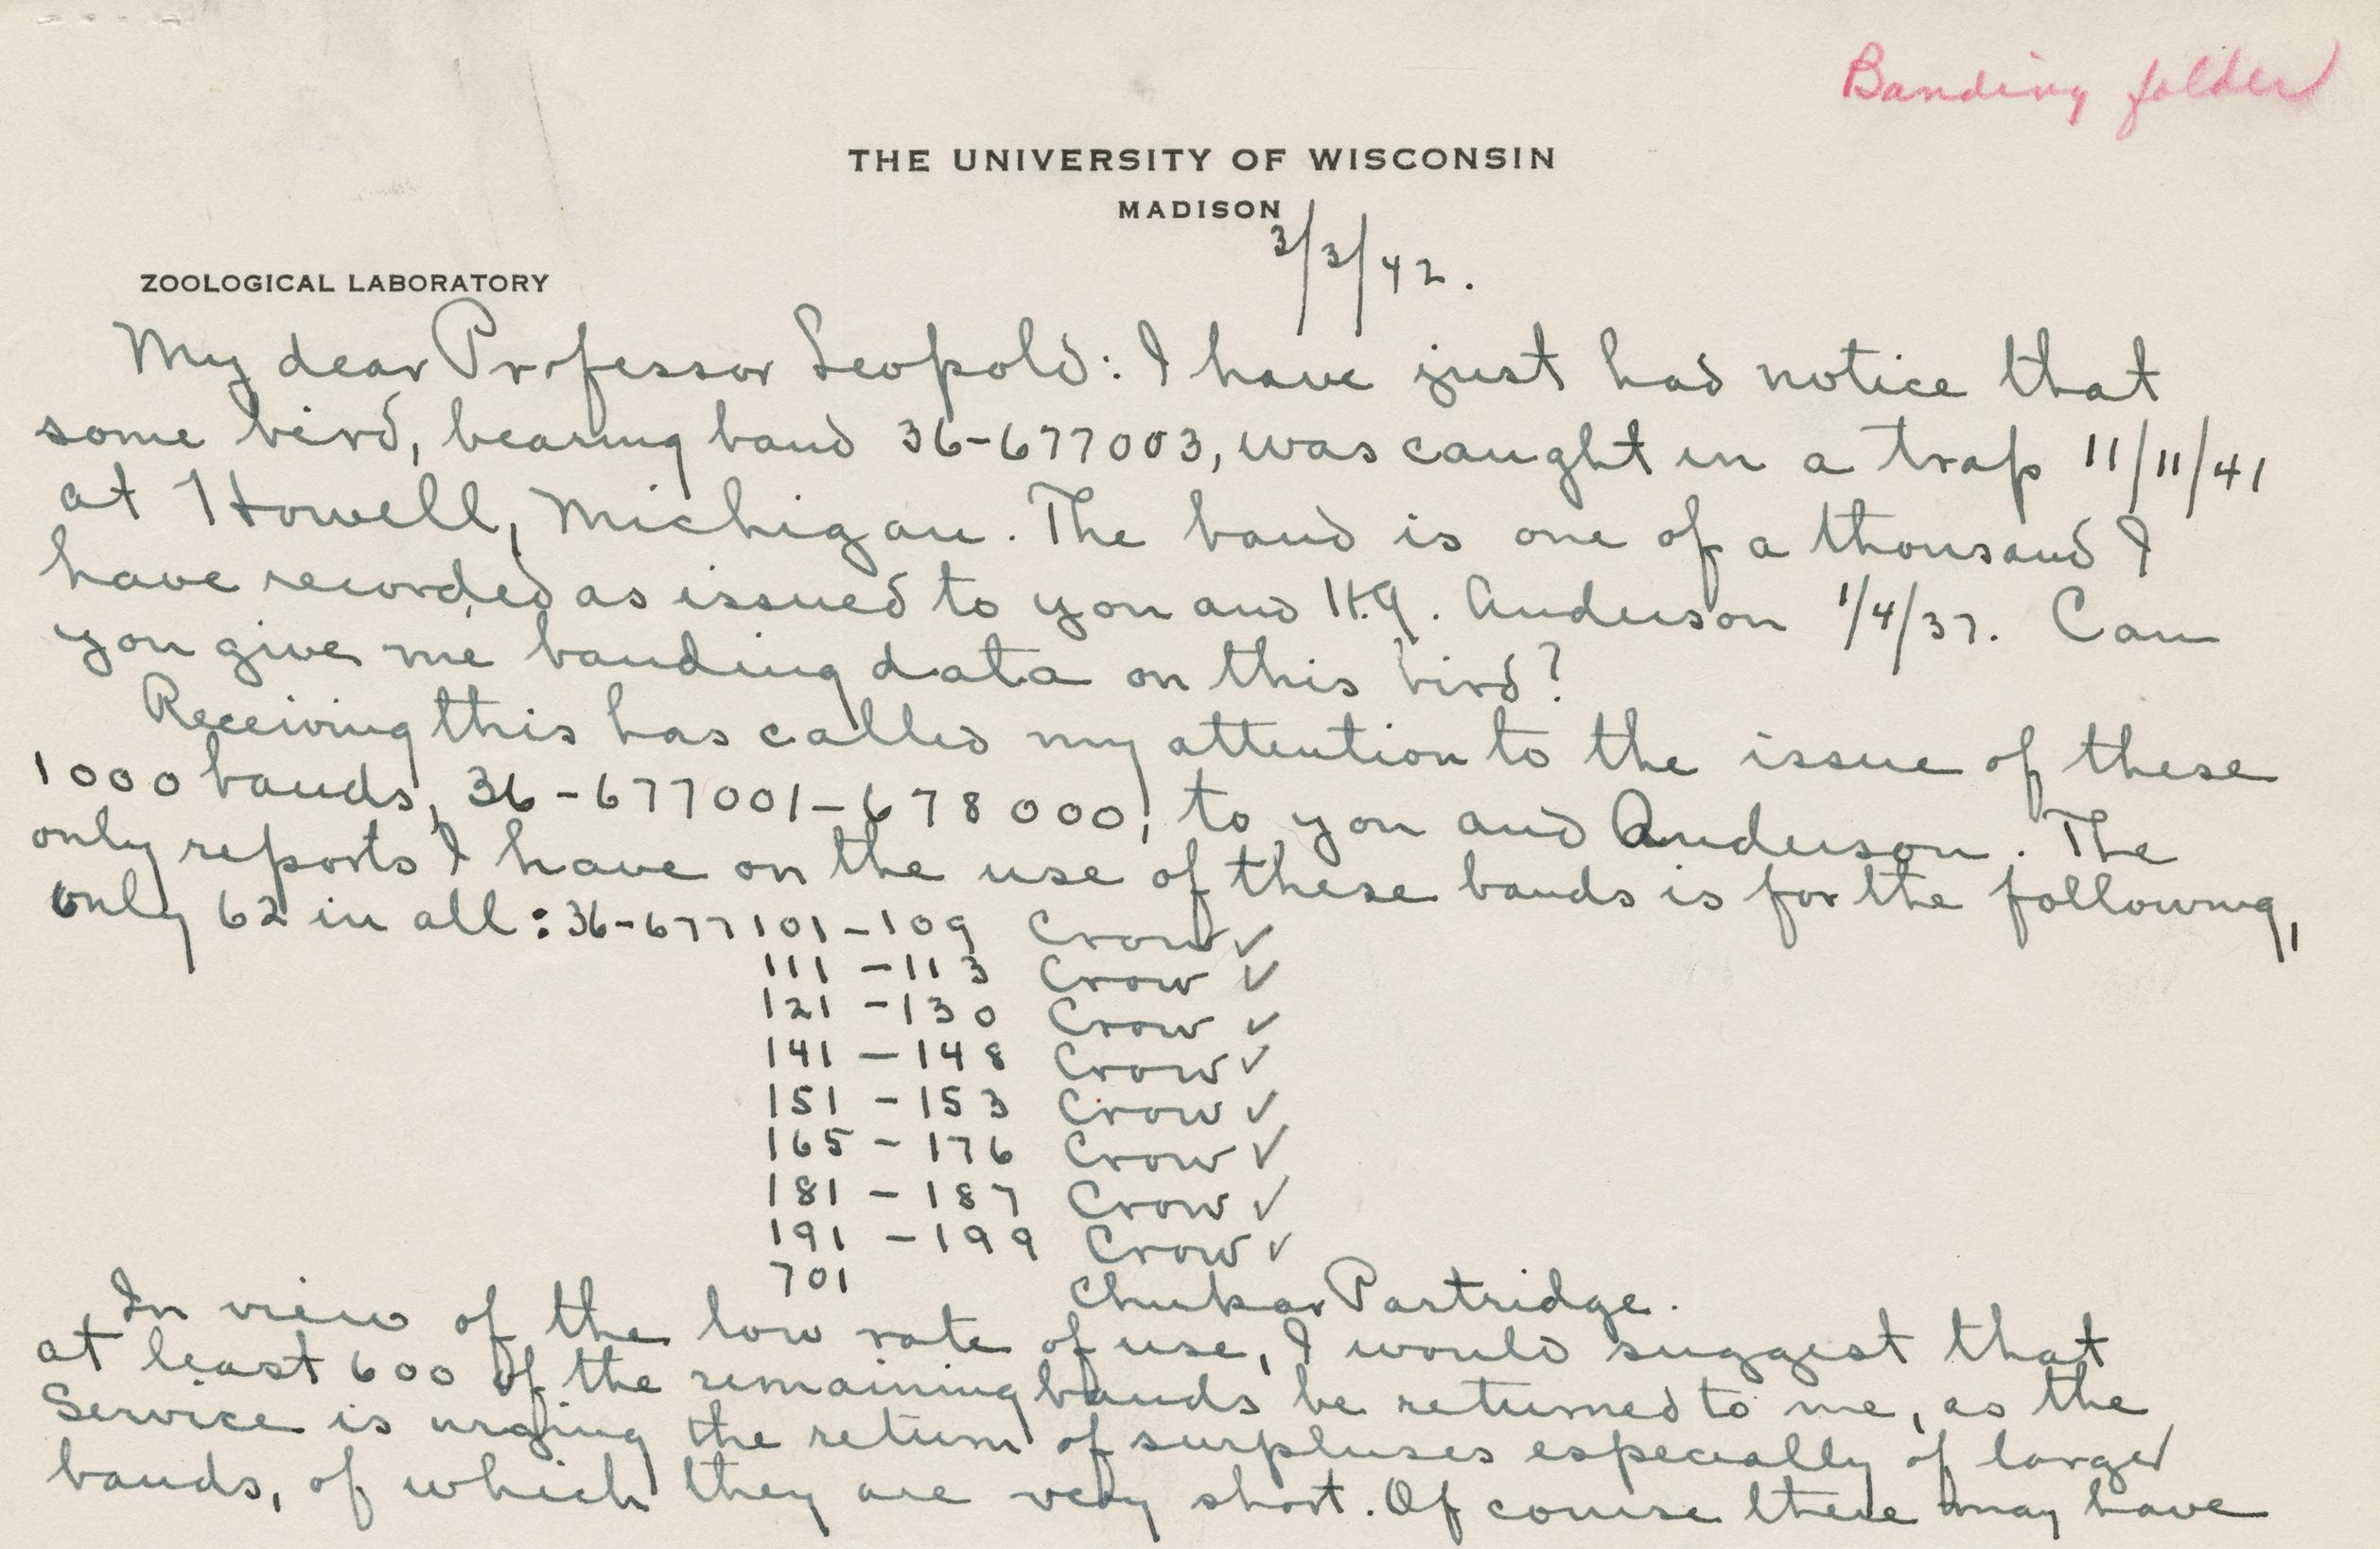 Banding folder
THE UNIVERSITY OF WISCONSIN
MADISON
3/3/42.
ZOOLOGICAL LABORATORY
My dear Professor Leopold: I have just had notice that
some bird, bearing band 36-677003, was caught in a trap 11/11/41
at Howell, Michigan. The band is one of a thousand I
have recorded as issued to you and H.G. Anderson 1/4/37. Can
you give me banding data on this bird?
Receiving this has called my attention to the issue of these
1000 bands, 36-677001-678000, to you and Anderson. The
only reports I have on the use of these bands is for the following,
only 62 in all: 36-677101-109 Crow ✓
111-113 Crow ✓
121-130 Crow ✓
141-148 Crow ✓
151-153 Crow ✓
165-176 Crow ✓
181-187 Crow ✓
191-199 Crow ✓
701 Chukar Partridge.
In view of the low rate of use, I would suggest that
at least 600 of the remaining bands be returned to me, as the
Service is urging the return of surpluses especially of larger
bands, of which they are very short. Of course there may have